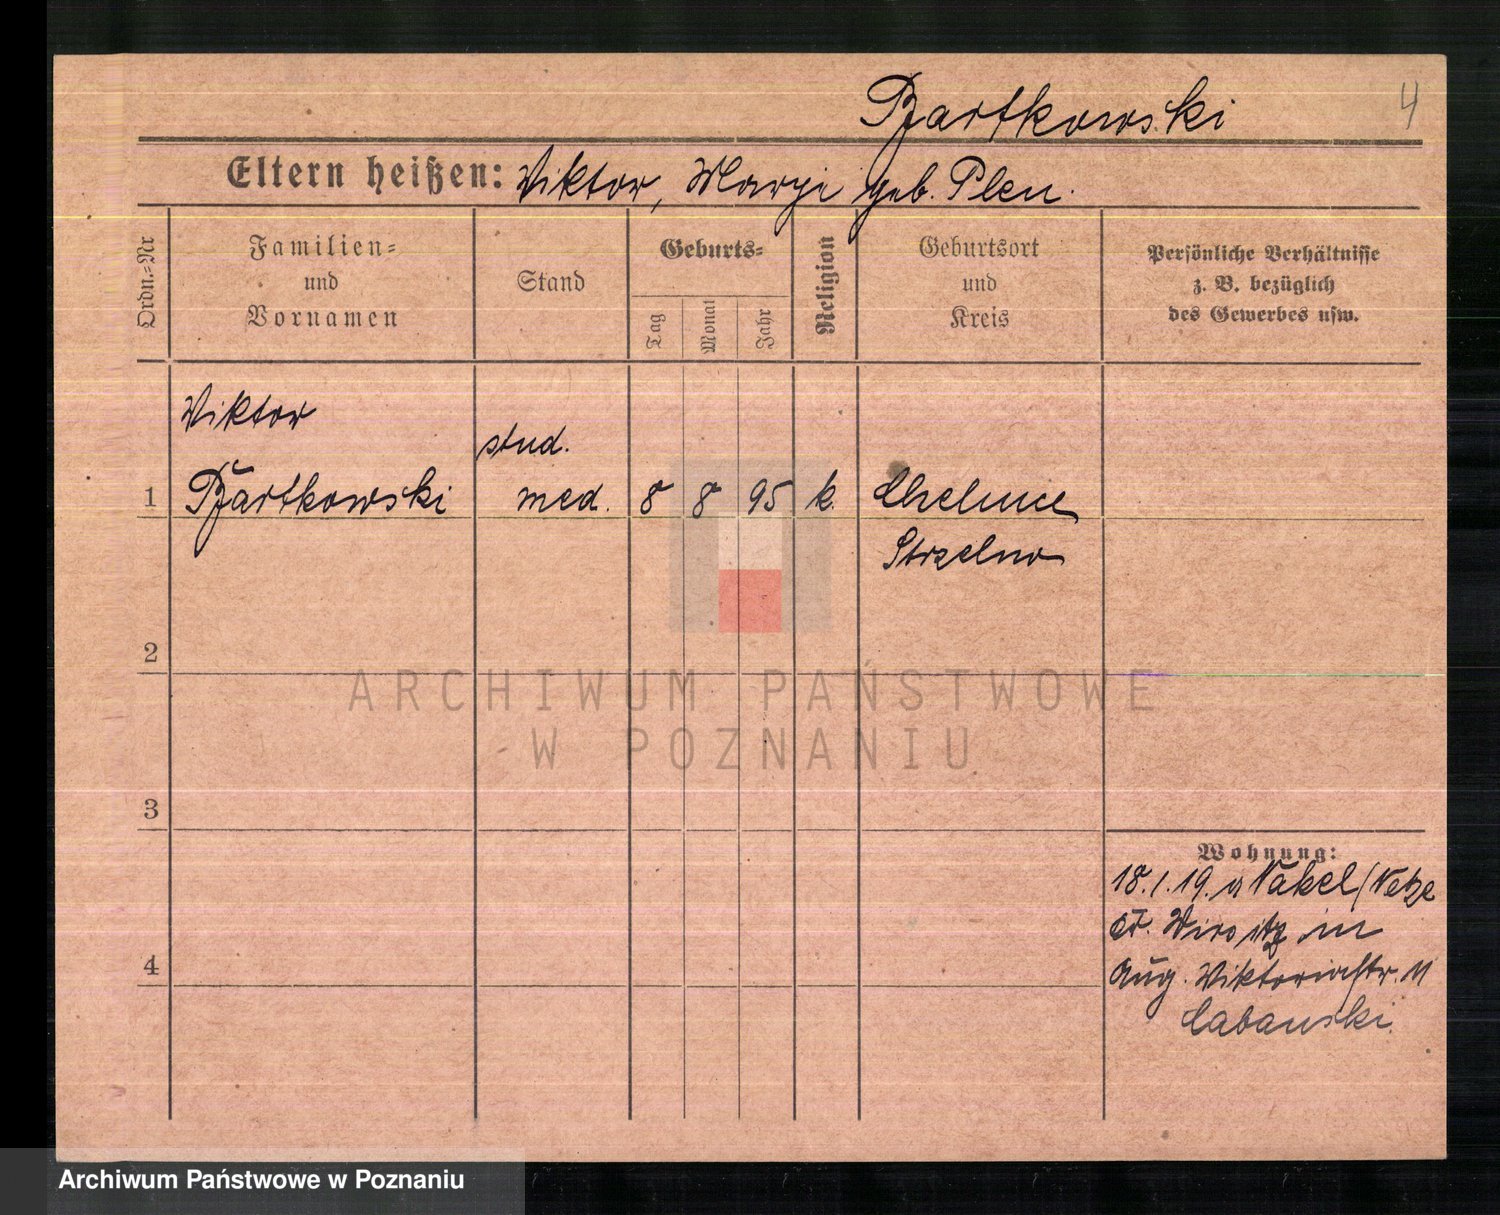 Bartkowski
4
Eltern heißen: Viktor, Marge geb. Plen.
Ordn.=Nr
Familien=
und
Vornamen
Stand
Geburts=
Tag
Monat
Jahr
Religion
Geburtsort
und
Kreis
Persönliche Verhältnisse
z. B. bezüglich
des Gewerbes usw.
Viktor
stud.
1 Bartkowski med. 8 8 95 k. Chelmce
Strzelno
2
ARCHIWUM PAŃSTWOWE
W POZNANIU
3
Wohnung:
18.1.19. a Nakel/Netze
Kr. Wirsitz in
Aug. Viktoriastr. 11
4
Cabanski.
Archiwum Państwowe w Poznaniu